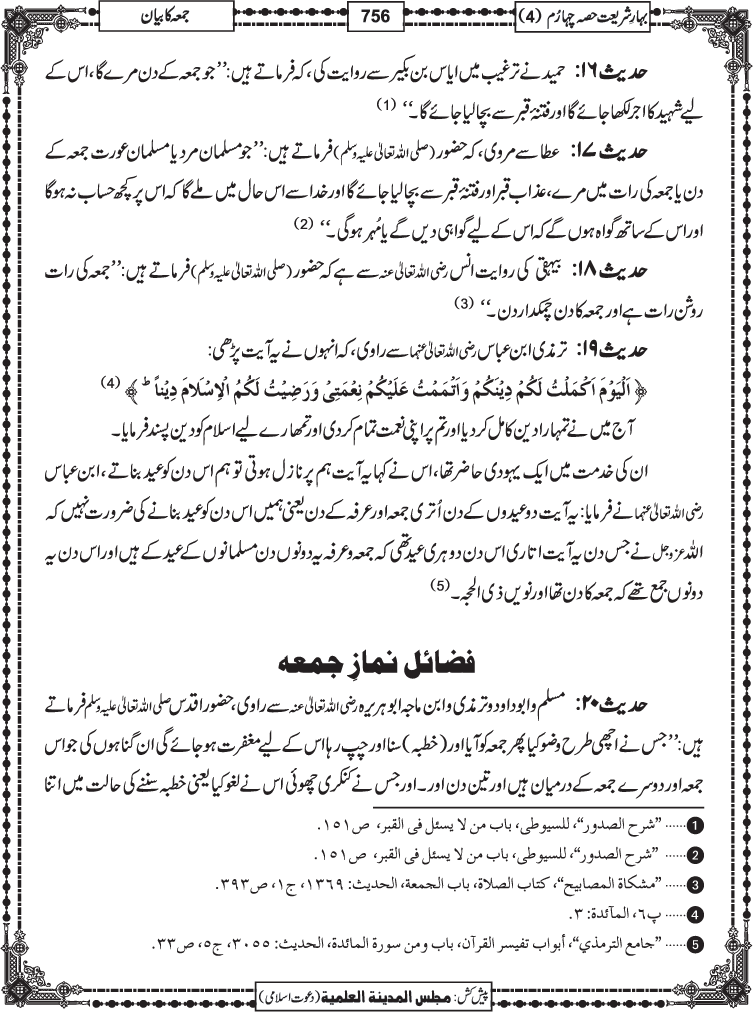 بہارِشریعت حصہ چہارم (4)
756
جمعہ کا بیان
حدیث ۱۶: حمید نے ترغیب میں ایاس بن بکیر سے روایت کی، کہ فرماتے ہیں: ’’جو جمعہ کے دن مرے گا، اس کے
لیے شہید کا اجر لکھا جائے گا اور فتنۂ قبر سے بچا لیا جائے گا۔‘‘ (1)
حدیث ۱۷: عطا سے مروی، کہ حضور (صلی اللہ تعالیٰ علیہ وسلم) فرماتے ہیں: ’’جو مسلمان مرد یا مسلمان عورت جمعہ کے
دن یا جمعہ کی رات میں مرے، عذاب قبر اور فتنۂ قبر سے بچا لیا جائے گا اور خدا سے اس حال میں ملے گا کہ اس پر کچھ حساب نہ ہوگا
اور اس کے ساتھ گواہ ہوں گے کہ اس کے لیے گواہی دیں گے یا مُہر ہوگی۔‘‘ (2)
حدیث ۱۸: بیہقی کی روایت انس رضی اللہ تعالیٰ عنہ سے ہے کہ حضور (صلی اللہ تعالیٰ علیہ وسلم) فرماتے ہیں: ’’جمعہ کی رات
روشن رات ہے اور جمعہ کا دن چمکدار دن۔‘‘ (3)
حدیث ۱۹: ترمذی ابن عباس رضی اللہ تعالیٰ عنہما سے راوی، کہ انہوں نے یہ آیت پڑھی:
﴿ اَلْیَوْمَ اَكْمَلْتُ لَكُمْ دِیْنَكُمْ وَاَتْمَمْتُ عَلَیْكُمْ نِعْمَتِیْ وَرَضِیْتُ لَكُمُ الْاِسْلَامَ دِیْنًا ؕ﴾ (4)
آج میں نے تمہارا دین کامل کر دیا اور تم پر اپنی نعمت تمام کر دی اور تمھارے لیے اسلام کو دین پسند فرمایا۔
ان کی خدمت میں ایک یہودی حاضر تھا، اس نے کہا یہ آیت ہم پر نازل ہوتی تو ہم اس دن کو عید بناتے، ابن عباس
رضی اللہ تعالیٰ عنہما نے فرمایا: یہ آیت دو عیدوں کے دن اُتری جمعہ اور عرفہ کے دن یعنی ہمیں اس دن کو عید بنانے کی ضرورت نہیں کہ
اللہ عزوجل نے جس دن یہ آیت اتاری اس دن دوہری عید تھی کہ جمعہ و عرفہ یہ دونوں دن مسلمانوں کے عید کے ہیں اور اس دن یہ
دونوں جمع تھے کہ جمعہ کا دن تھا اور نویں ذی الحجہ۔ (5)
فضائل نمازِ جمعہ
حدیث ۲۰: مسلم و ابوداود و ترمذی و ابن ماجہ ابوہریرہ رضی اللہ تعالیٰ عنہ سے راوی، حضور اقدس صلی اللہ تعالیٰ علیہ وسلم فرماتے
ہیں: ’’جس نے اچھی طرح وضو کیا پھر جمعہ کو آیا اور (خطبہ) سنا اور چپ رہا اس کے لیے مغفرت ہو جائے گی ان گناہوں کی جو اس
جمعہ اور دوسرے جمعہ کے درمیان ہیں اور تین دن اور۔ اور جس نے کنکری چھوئی اس نے لغو کیا یعنی خطبہ سننے کی حالت میں اتنا
1 ...... "شرح الصدور"، للسیوطی، باب من لا یسئل فی القبر، ص ۱۵۱.
2 ...... "شرح الصدور"، للسیوطی، باب من لا یسئل فی القبر، ص ۱۵۱.
3 ...... "مشکاة المصابیح"، کتاب الصلاة، باب الجمعة، الحدیث: ۱۳۶۹، ج۱، ص۳۹۳.
4 ...... پ۶، المآئدة: ۳.
5 ...... "جامع الترمذي"، أبواب تفیسر القرآن، باب ومن سورة المائدة، الحدیث: ۳۰۵۵، ج۵، ص۳۳.
پیش کش: مجلس المدینة العلمیة (دعوت اسلامی)